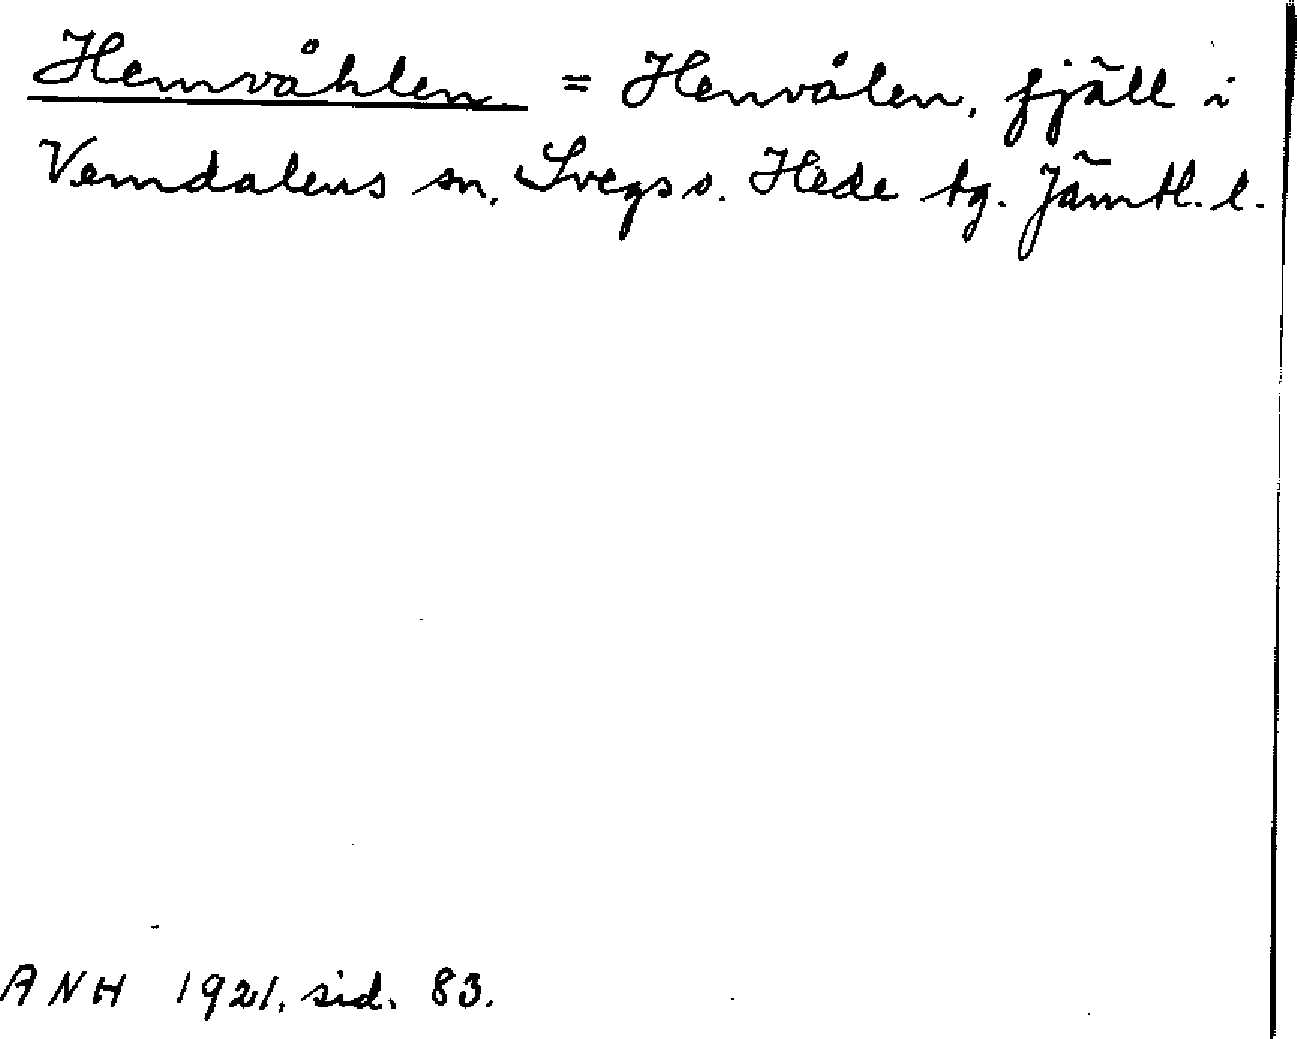 Hemvåhlen = Henvålen, fjäll i
Vemdalens sn. Svegs o. Hede tg. Jämtl. l.
ANH 1921, sid. 83.